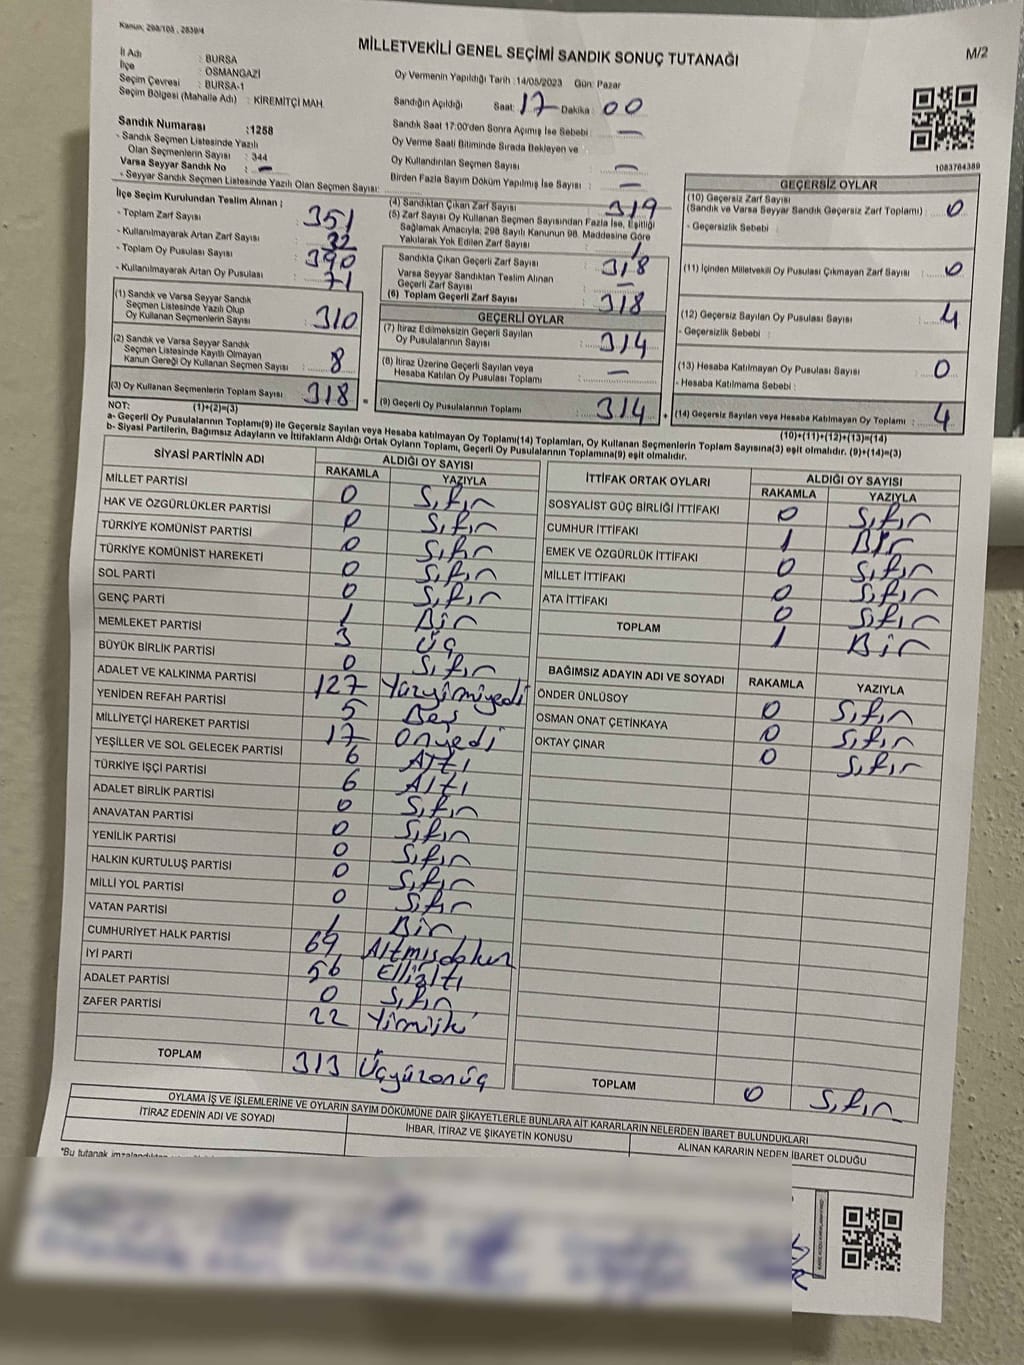 Kanun: 298/105 , 2839/4
MİLLETVEKİLİ GENEL SEÇİMİ SANDIK SONUÇ TUTANAĞI
M/2
İl Adı : BURSA
İlçe : OSMANGAZİ
Seçim Çevresi : BURSA-1
Seçim Bölgesi (Mahalle Adı) : KİREMİTÇİ MAH.
Oy Vermenin Yapıldığı Tarih : 14/05/2023 Gün: Pazar
Sandığın Açıldığı Saat: 17 Dakika : 00
Sandık Saat 17:00'den Sonra Açımış İse Sebebi : —
Oy Verme Saati Bitiminde Sırada Bekleyen ve
Oy Kullandırılan Seçmen Sayısı : —
Birden Fazla Sayım Döküm Yapılmış İse Sayısı : —
Sandık Numarası :1258
- Sandık Seçmen Listesinde Yazılı
Olan Seçmenlerin Sayısı : 344
Varsa Seyyar Sandık No : —
- Seyyar Sandık Seçmen Listesinde Yazılı Olan Seçmen Sayısı:
1083764389
İlçe Seçim Kurulundan Teslim Alınan ;
- Toplam Zarf Sayısı : 351
- Kullanılmayarak Artan Zarf Sayısı : 32
- Toplam Oy Pusulası Sayısı : 390
- Kullanılmayarak Artan Oy Pusulası : 71
(1) Sandık ve Varsa Seyyar Sandık
Seçmen Listesinde Yazılı Olup
Oy Kullanan Seçmenlerin Sayısı : 310
(2) Sandık ve Varsa Seyyar Sandık
Seçmen Listesinde Kayıtlı Olmayan
Kanun Gereği Oy Kullanan Seçmen Sayısı : 8
(3) Oy Kullanan Seçmenlerin Toplam Sayısı : 318 =
(4) Sandıktan Çıkan Zarf Sayısı : 319
(5) Zarf Sayısı Oy Kullanan Seçmen Sayısından Fazla İse, Eşitliği
Sağlamak Amacıyla, 298 Sayılı Kanunun 98. Maddesine Göre
Yakılarak Yok Edilen Zarf Sayısı : 1
Sandıkta Çıkan Geçerli Zarf Sayısı : 318
Varsa Seyyar Sandıktan Teslim Alınan
Geçerli Zarf Sayısı : —
(6) Toplam Geçerli Zarf Sayısı : 318
GEÇERLİ OYLAR
(7) İtiraz Edilmeksizin Geçerli Sayılan
Oy Pusulalarının Sayısı : 314
(8) İtiraz Üzerine Geçerli Sayılan veya
Hesaba Katılan Oy Pusulası Toplamı : —
(9) Geçerli Oy Pusulalarının Toplamı : 314 +
GEÇERSİZ OYLAR
(10) Geçersiz Zarf Sayısı
(Sandık ve Varsa Seyyar Sandık Geçersiz Zarf Toplamı) : 0
- Geçersizlik Sebebi :
(11) İçinden Milletvekili Oy Pusulası Çıkmayan Zarf Sayısı : 0
(12) Geçersiz Sayılan Oy Pusulası Sayısı : 4
- Geçersizlik Sebebi :
(13) Hesaba Katılmayan Oy Pusulası Sayısı : 0
- Hesaba Katılmama Sebebi :
(14) Geçersiz Sayılan veya Hesaba Katılmayan Oy Toplamı : 4
NOT: (1)+(2)=(3) (10)+(11)+(12)+(13)=(14)
a- Geçerli Oy Pusulaları Toplamı(9) ile Geçersiz Sayılan veya Hesaba katılmayan Oy Toplamı(14) Toplamları, Oy Kullanan Seçmenlerin Toplam Sayısına(3) eşit olmalıdır. (9)+(14)=(3)
b- Siyasi Partilerin, Bağımsız Adayların ve İttifakların Aldığı Ortak Oyların Toplamı, Geçerli Oy Pusulalarının Toplamına(9) eşit olmalıdır.
SİYASİ PARTİNİN ADI ALDIĞI OY SAYISI
RAKAMLA YAZIYLA
MİLLET PARTİSİ 0 Sıfır
HAK VE ÖZGÜRLÜKLER PARTİSİ 0 Sıfır
TÜRKİYE KOMÜNİST PARTİSİ 0 Sıfır
TÜRKİYE KOMÜNİST HAREKETİ 0 Sıfır
SOL PARTİ 0 Sıfır
GENÇ PARTİ 1 Bir
MEMLEKET PARTİSİ 3 Üç
BÜYÜK BİRLİK PARTİSİ 0 Sıfır
ADALET VE KALKINMA PARTİSİ 127 Yüzyimiyedi
YENİDEN REFAH PARTİSİ 5 Beş
MİLLİYETÇİ HAREKET PARTİSİ 17 Onyedi
YEŞİLLER VE SOL GELECEK PARTİSİ 6 Altı
TÜRKİYE İŞÇİ PARTİSİ 6 Altı
ADALET BİRLİK PARTİSİ 0 Sıfır
ANAVATAN PARTİSİ 0 Sıfır
YENİLİK PARTİSİ 0 Sıfır
HALKIN KURTULUŞ PARTİSİ 0 Sıfır
MİLLİ YOL PARTİSİ 0 Sıfır
VATAN PARTİSİ 1 Bir
CUMHURİYET HALK PARTİSİ 69 Altmışdokuz
İYİ PARTİ 56 Ellialtı
ADALET PARTİSİ 0 Sıfır
ZAFER PARTİSİ 22 Yimiiki
TOPLAM 313 Üçyüzonüç
İTTİFAK ORTAK OYLARI ALDIĞI OY SAYISI
RAKAMLA YAZIYLA
SOSYALİST GÜÇ BİRLİĞİ İTTİFAKI 0 Sıfır
CUMHUR İTTİFAKI 1 Bir
EMEK VE ÖZGÜRLÜK İTTİFAKI 0 Sıfır
MİLLET İTTİFAKI 0 Sıfır
ATA İTTİFAKI 0 Sıfır
TOPLAM 1 Bir
BAĞIMSIZ ADAYIN ADI VE SOYADI RAKAMLA YAZIYLA
ÖNDER ÜNLÜSOY 0 Sıfır
OSMAN ONAT ÇETİNKAYA 0 Sıfır
OKTAY ÇINAR 0 Sıfır
TOPLAM 0 Sıfır
OYLAMA İŞ VE İŞLEMLERİNE VE OYLARIN SAYIM DÖKÜMÜNE DAİR ŞİKAYETLERLE BUNLARA AİT KARARLARIN NELERDEN İBARET BULUNDUKLARI
İTİRAZ EDENİN ADI VE SOYADI İHBAR, İTİRAZ VE ŞİKAYETİN KONUSU ALINAN KARARIN NEDEN İBARET OLDUĞU
*Bu tutanak